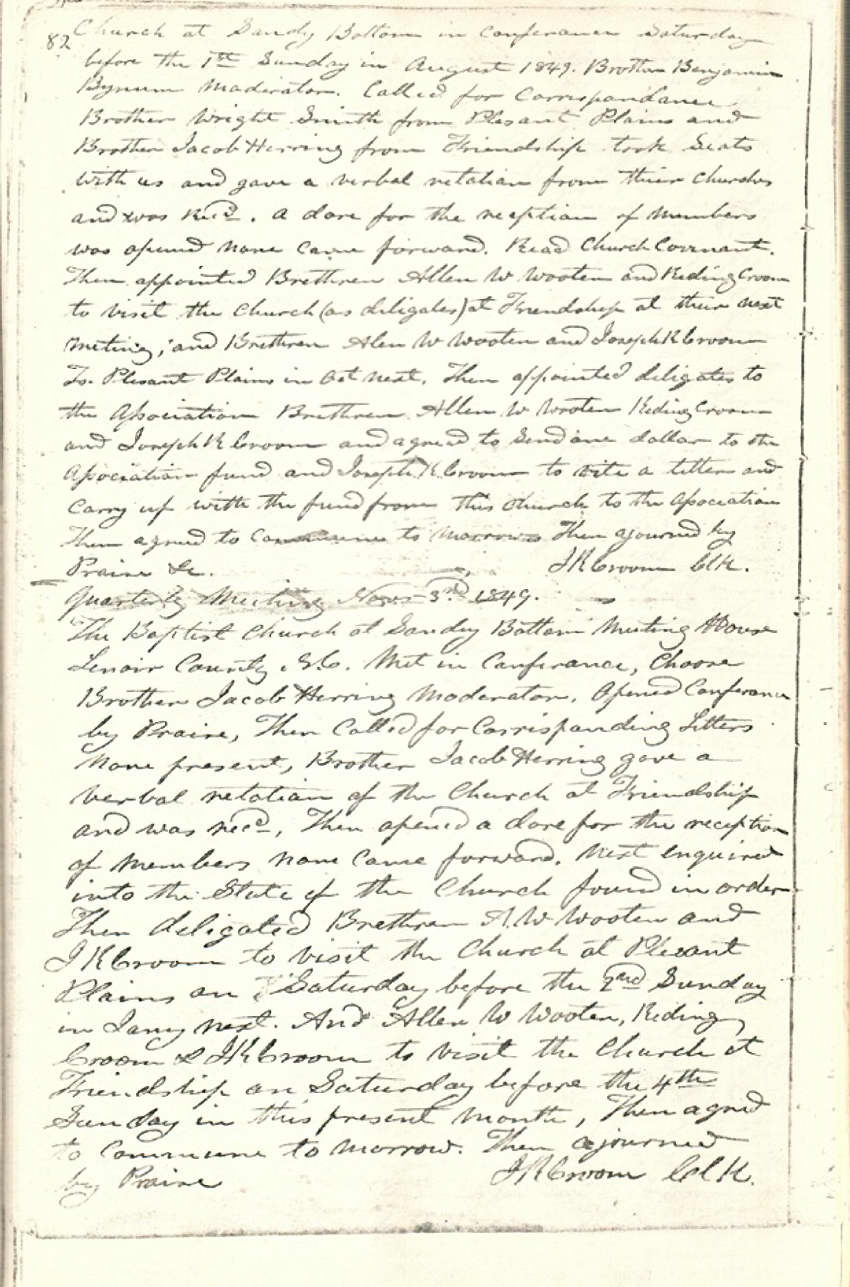 82
Church at Sandy Bottom in conferance Saturday
before the 1st Sunday in August 1849. Brother Benjamin
Bynum Moderator. Called for Correspondance
Brother Wright Smith from Plesant Plains and
Brother Jacob Herring from Friendship took Seats
with us and gave a verbal relation from their Churches
and was recd. a dore for the reception of members
was opened none came forward. Read Church Covenant.
Then appointed Brethren Allen W Wooten and Reding Croom
to visit the Church (as deligates) at Friendship at their next
meeting, and Brethren Alen W Wooten and Joseph R Croom
To Plesant Plains in Oct next. Then appointed deligates to
the Association Brethren Allen W Wooten Reding Croom
and Joseph R Croom and agreed to Send one dollar to the
Association fund and Joseph R Croom to rite a letter and
carry up with the fund from this Church to the Association
Then agreed to Commune to morrow Then ajourned by
Praire &c. J R Croom Clk.
Quarterly Meeting Novr 3rd 1849.
The Baptist Church at Sandy Bottom Meeting House
Lenoir County N.C. Met in Conferance, Choose
Brother Jacob Herring Moderator. Opened Conferance
by Praire, Then Called for Corrisponding Letters
None present, Brother Jacob Herring gave a
verbal relation of the Church at Friendship
and was recd, Then opened a dore for the reception
of members none came forward. Next enquired
into the State of the Church found in order
Then deligated Brethren A. W Wooten and
J R Croom to visit the Church at Plesant
Plains on Saturday before the 2nd Sunday
in Jany next. And Allen W Wooten, Reding
Croom & J R Croom to visit the Church at
Friendship on Saturday before the 4th
Sunday in this present month, Then agred
to Commune to morrow. Then ajourned
by Praire J R Croom Clk.